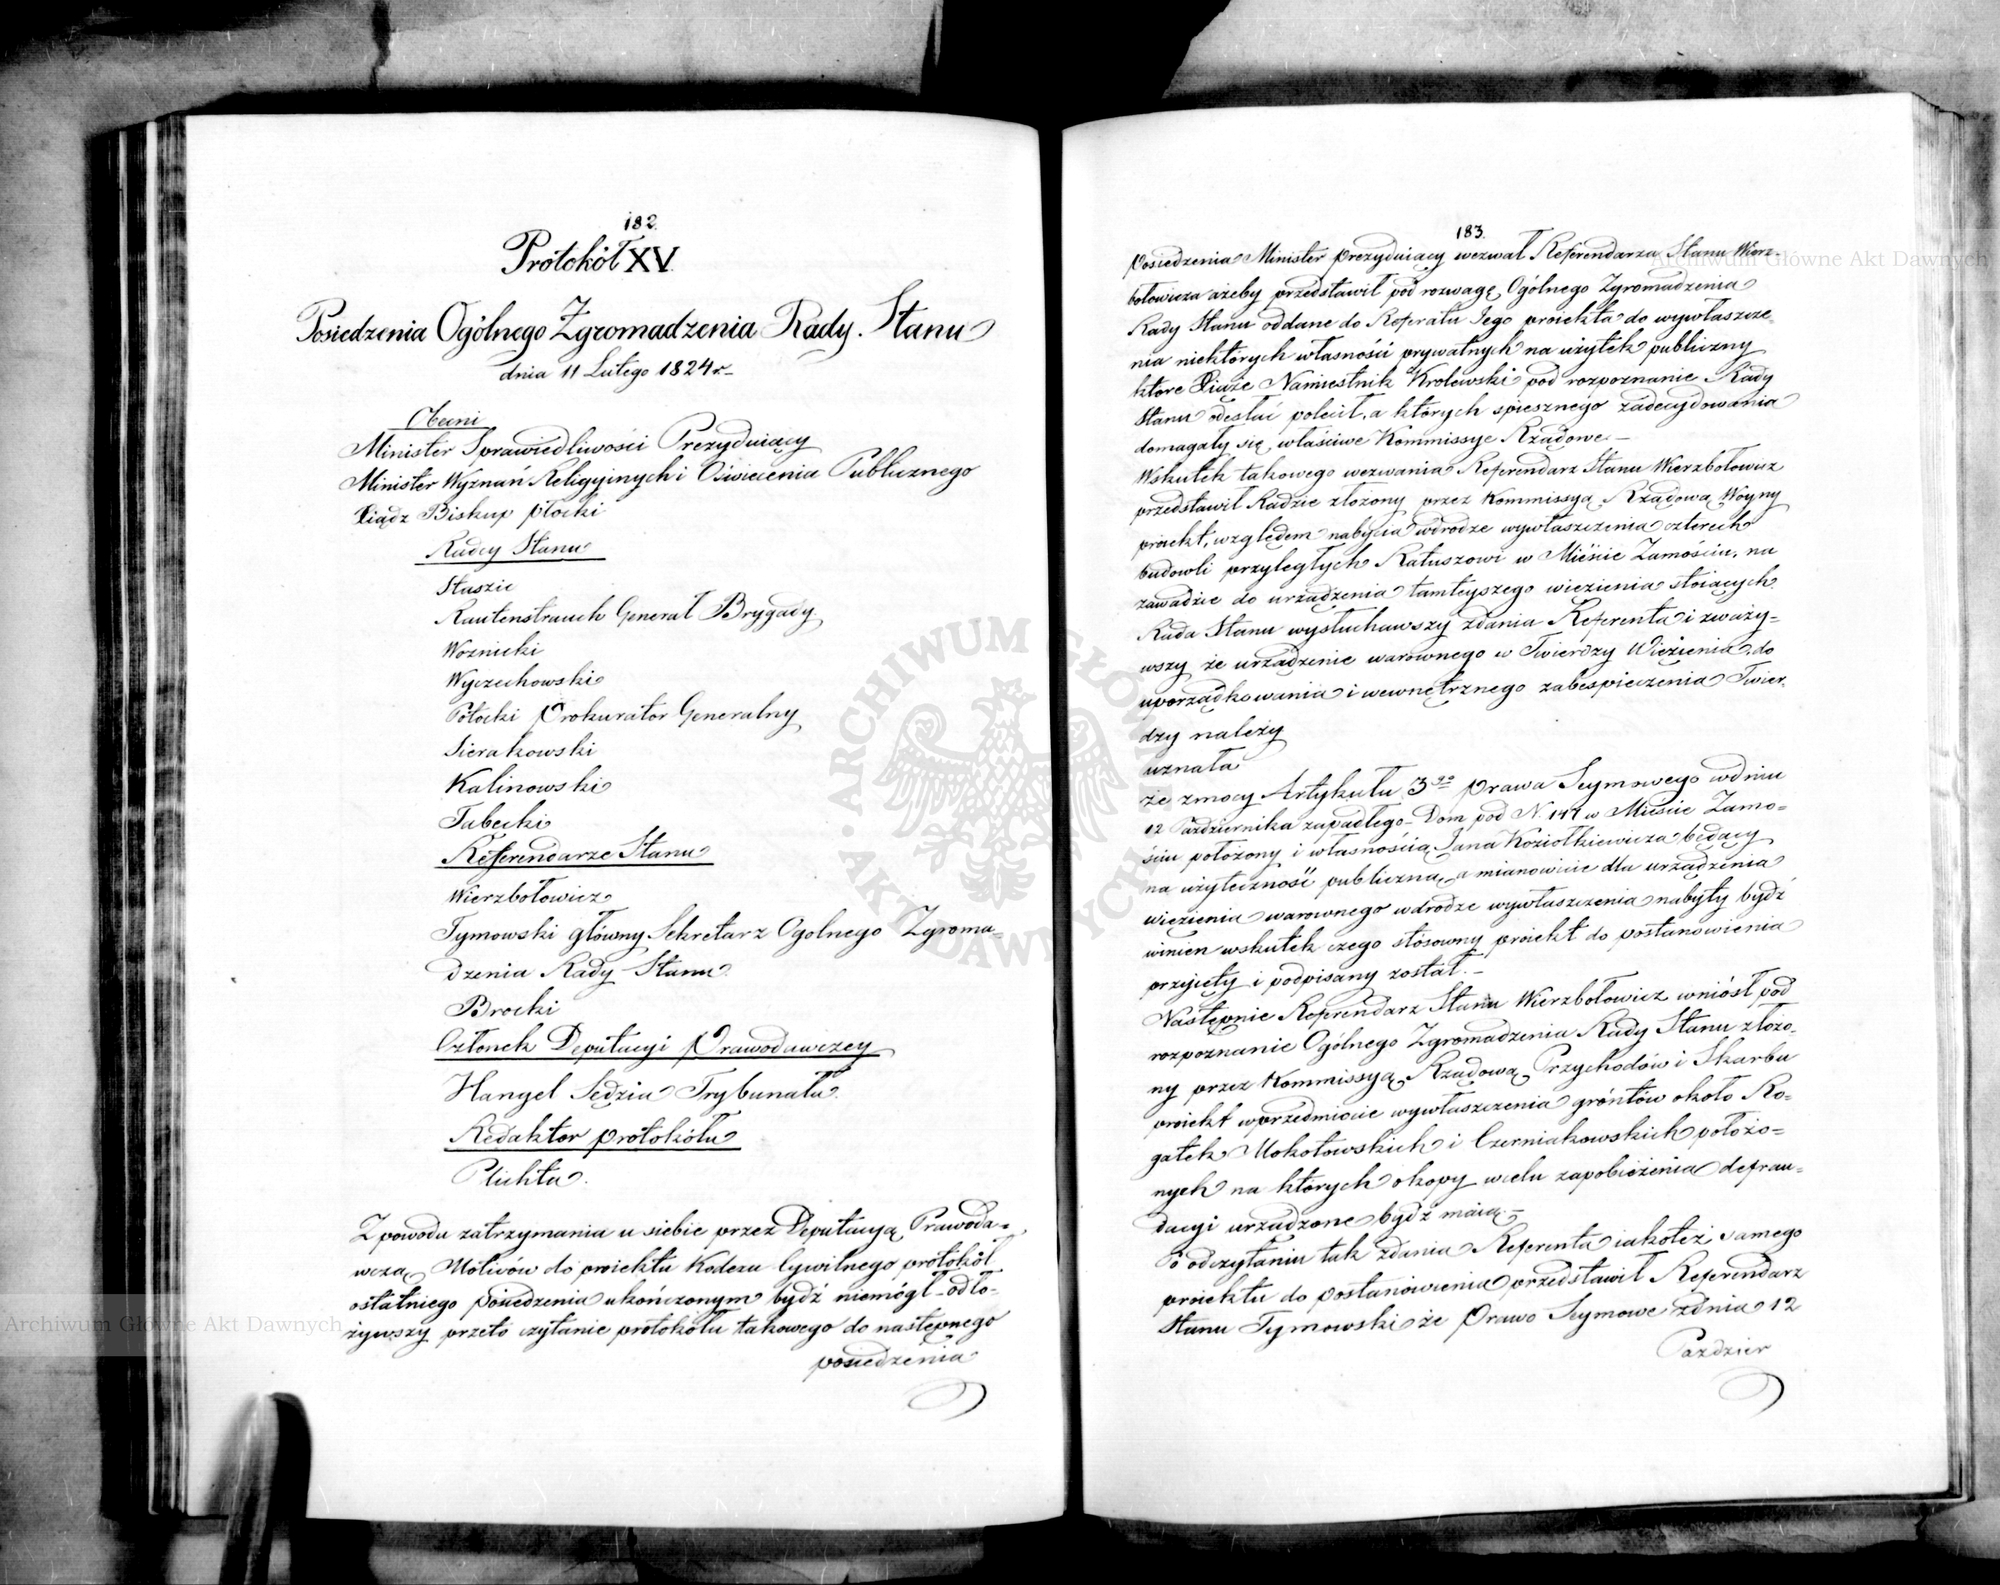 182.
Protokół XV.
Posiedzenia Ogólnego Zgromadzenia Rady Stanu
dnia 11 Lutego 1824 r.
Obecni
Minister Sprawiedliwości Prezyduiący
Minister Wyznań Religyinych i Oświecenia Publicznego
Xiądz Biskup płocki
Radcy Stanu
Staszic
Rautenstrauch Generał Brygady
Woznicki
Wyczechowski
Potocki Prokurator Generalny
Sierakowski
Kalinowski
Tabecki
Referendarze Stanu
Wierzbołowicz
Tymowski główny Sekretarz Ogolnego Zgroma-
dzenia Rady Stanu.
Brocki
Członek Deputacyi Prawodawczey
Hangel Sędzia Trybunału.
Redaktor protokółu
Plichta.
Z powodu zatrzymania u siebie przez Deputacyą Prawoda-
wczą Motivów do proiektu Kodexu Cywilnego protokół
ostatniego posiedzenia ukończonym bydź niemógł - odło-
żywszy przeto czytanie protokółu takowego do następnego
posiedzenia
183.
posiedzenia Minister prezyduiący wezwał Referendarza Stanu Wierz-
bołowicza ażeby przedstawił pod rozwagę Ogólnego Zgromadzenia
Rady Stanu oddane do Referatu Jego proiekta do wywłaszcze-
nia niektórych własności prywatnych na użytek publiczny
które Xiąże Namiestnik Krolewski pod rozpoznanie Rady
Stanu odesłać polecił, a których spiesznego zadecydowania
domagały się właściwe Kommissye Rządowe. —
Wskutek takowego wezwania Referendarz Stanu Wierzbołowicz
przedstawił Radzie złożony przez Kommissyą Rządową Woyny
proiekt, względem nabycia wdrodze wywłaszczenia czterech
budowli przyległych Ratuszowi w Mieście Zamościu, na
zawadzie do urządzenia tamteyszego więzienia stoiących.
Rada Stanu wysłuchawszy zdania Referenta i zważy-
wszy że urządzenie warownego w Twierdzy Więzienia, do
uporządkowania i wewnętrznego zabespieczenia Twier-
dzy należy
uznała
że zmocy Artykułu 3go prawa Seymowego wdniu
12 Października zapadłego - Dom pod N. 147 w Mieście Zamo-
ściu położony i własnością Jana Koziołkiewicza będący
na użyteczność publiczną, a mianowicie dla urządzenia
więzienia warownego wdrodze wywłaszczenia nabyty bydź
winien wskutek czego stósowny proiekt do postanowienia
przyięty i podpisany został. —
Następnie Referendarz Stanu Wierzbołowicz wniósł pod
rozpoznanie Ogólnego Zgromadzenia Rady Stanu złożo-
ny przez Kommissyą Rządową Przychodów i Skarbu
proiekt wprzedmiocie wywłaszczenia gróntów około Ro-
gatek Mokotowskich i Czerniakowskich położo-
nych na których okopy wcelu zapobieżenia defrau-
dacyi urządzone bydź maią. —
Po odczytaniu tak zdania Referenta iakoteż samego
proiektu do postanowienia przedstawił Referendarz
Stanu Tymowski że Prawo Seymowe zdnia 12
Pazdzier
Archiwum Główne Akt Dawnych
Archiwum Główne Akt Dawnych
ARCHIWUM GŁÓWNE AKT DAWNYCH